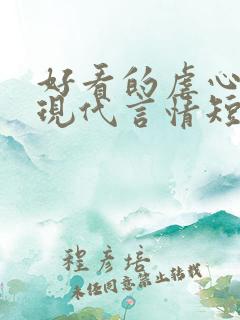 好看的虐心
現代言情短
程彦培
未经同意禁止转载